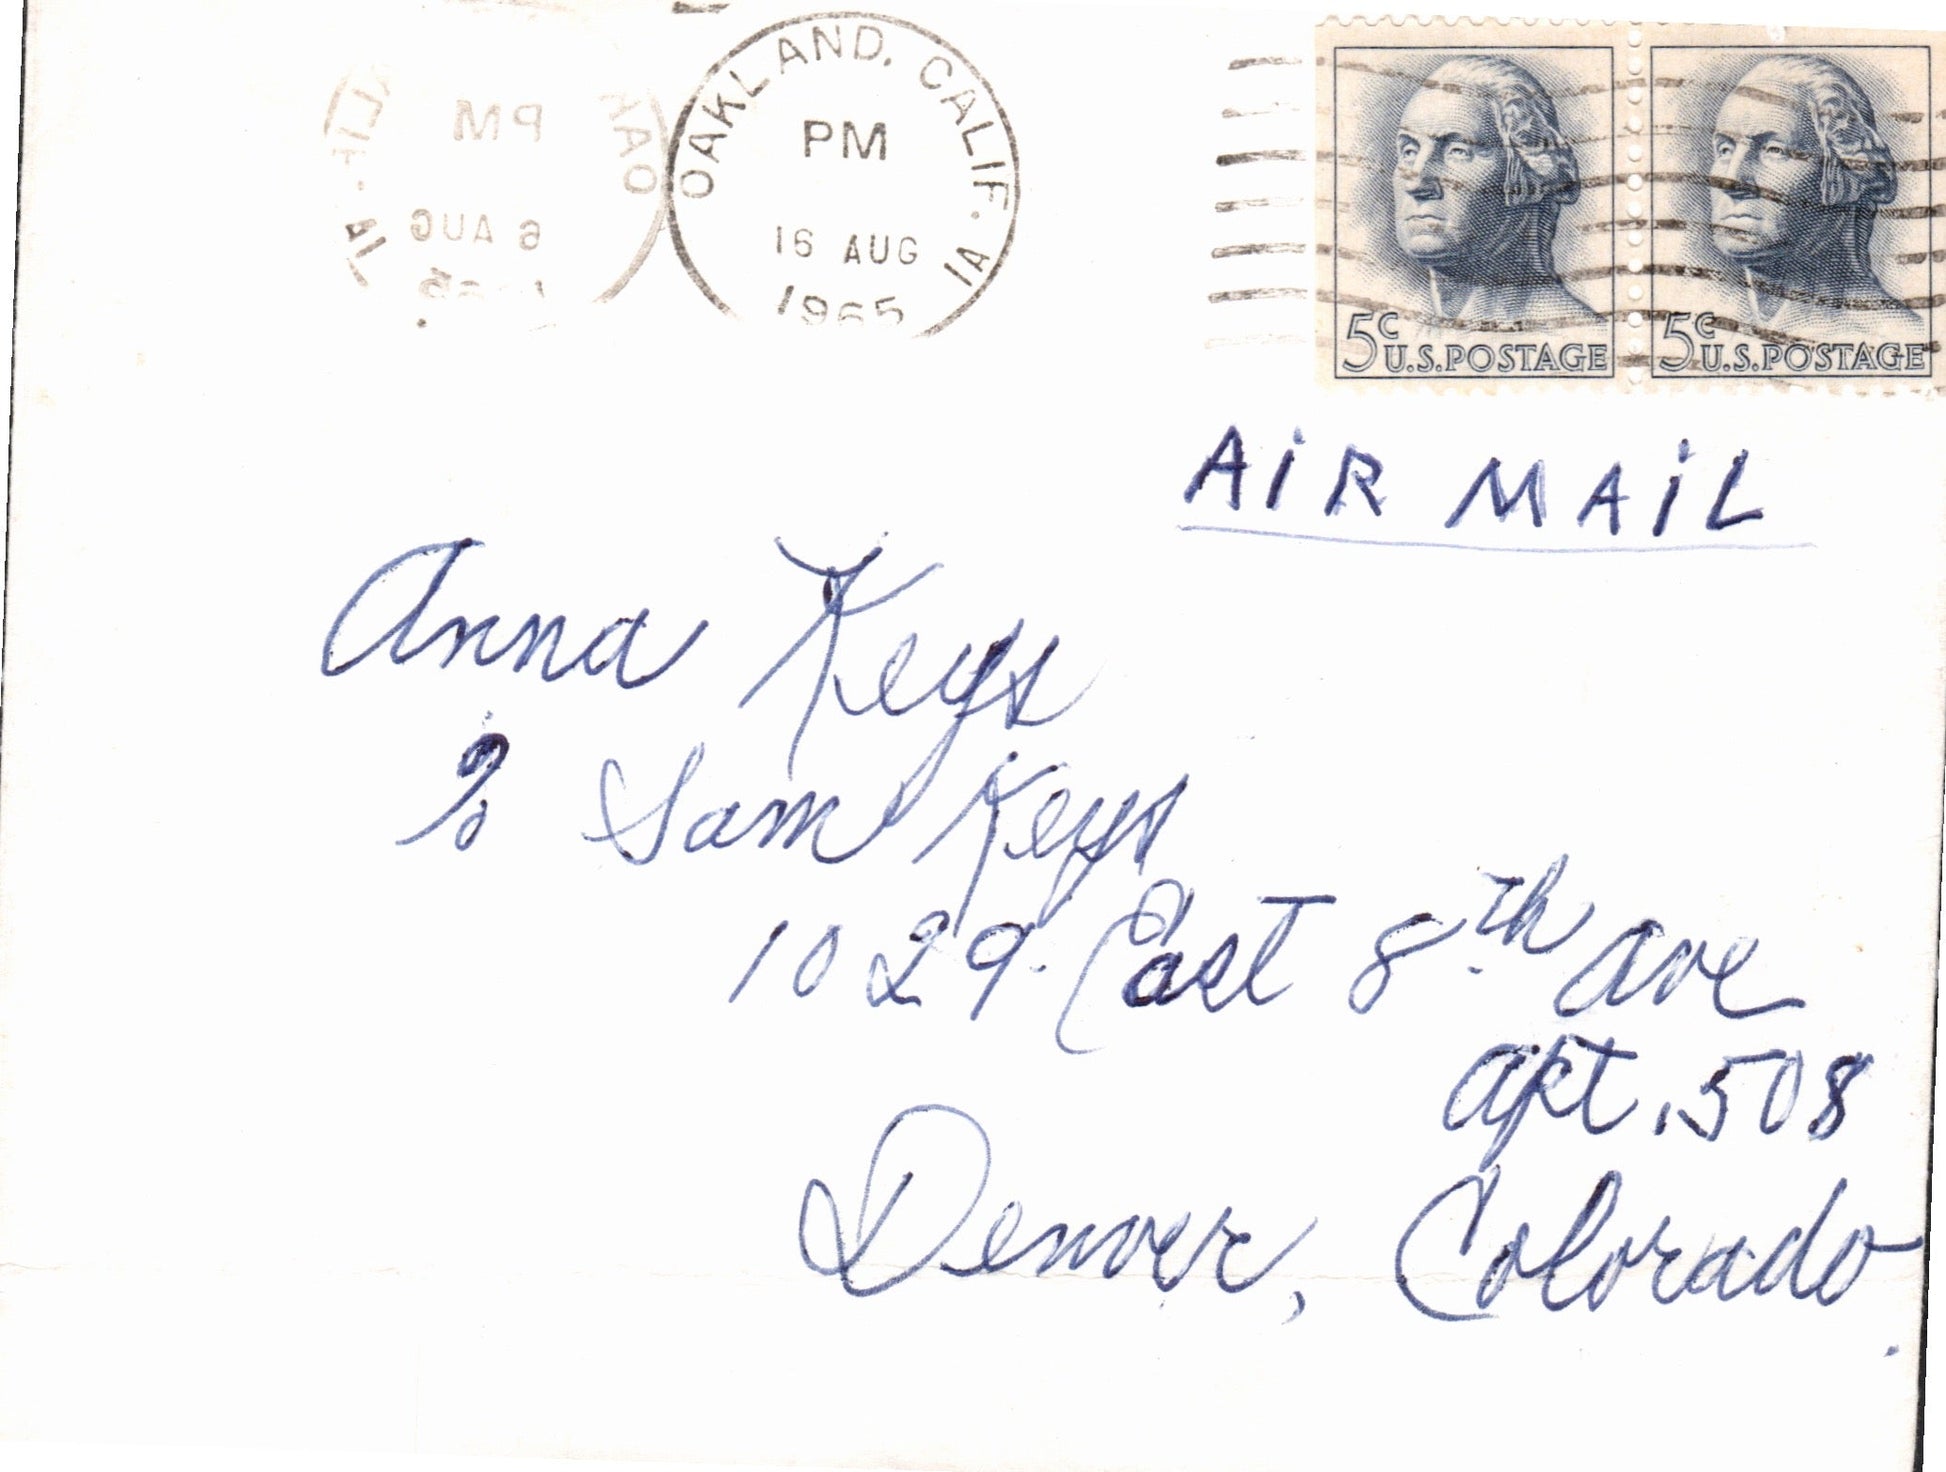 OAKLAND, CALIF. 1A
PM
16 AUG
1965
5c U.S.POSTAGE
5c U.S.POSTAGE
AiR MAiL
Anna Keys
% Sam Keys
1029 East 8th ave
apt. 508
Denver, Colorado.